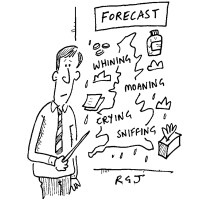 FORECAST
WHINING
MOANING
CRYING
SNIFFING
RGJ